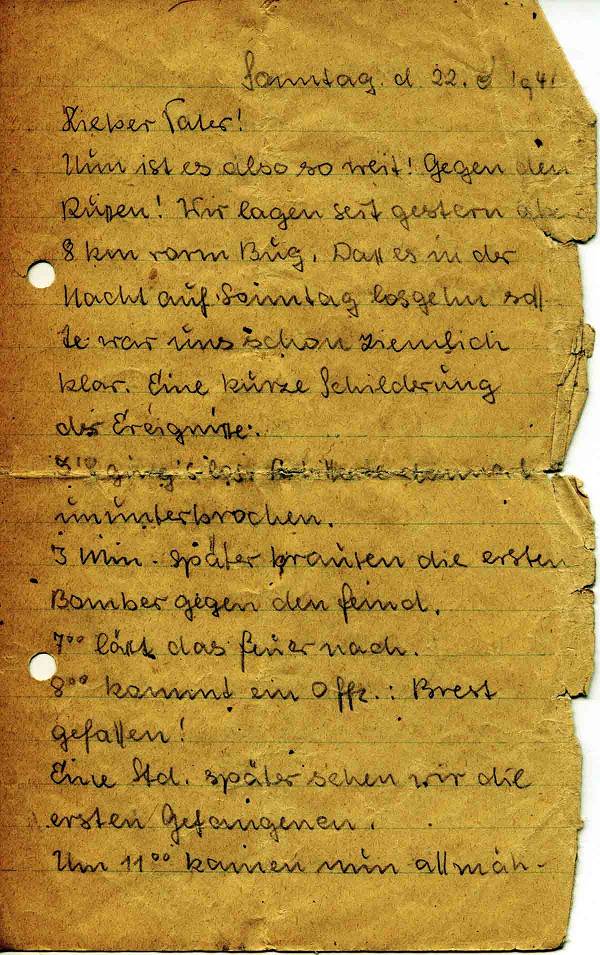 Sonntag. d 22. 6 1941
Lieber Vater!
Nun ist es also so weit! Gegen den
Russen! Wir lagen seit gestern
8 km vorm Bug. Dass es in der
Nacht auf Sonntag losgehn soll
te war uns schon ziemlich
klar. Eine kurze Schilderung
der Ereignisse:
ging's los:
ununterbrochen.
3 Min. später brausten die ersten
Bomber gegen den Feind.
7°° lässt das Feuer nach.
8°° kommt ein Offz.: Brest
gefallen!
Eine Std. später sehen wir die
ersten Gefangenen.
Um 11°° kamen nun allmäh-